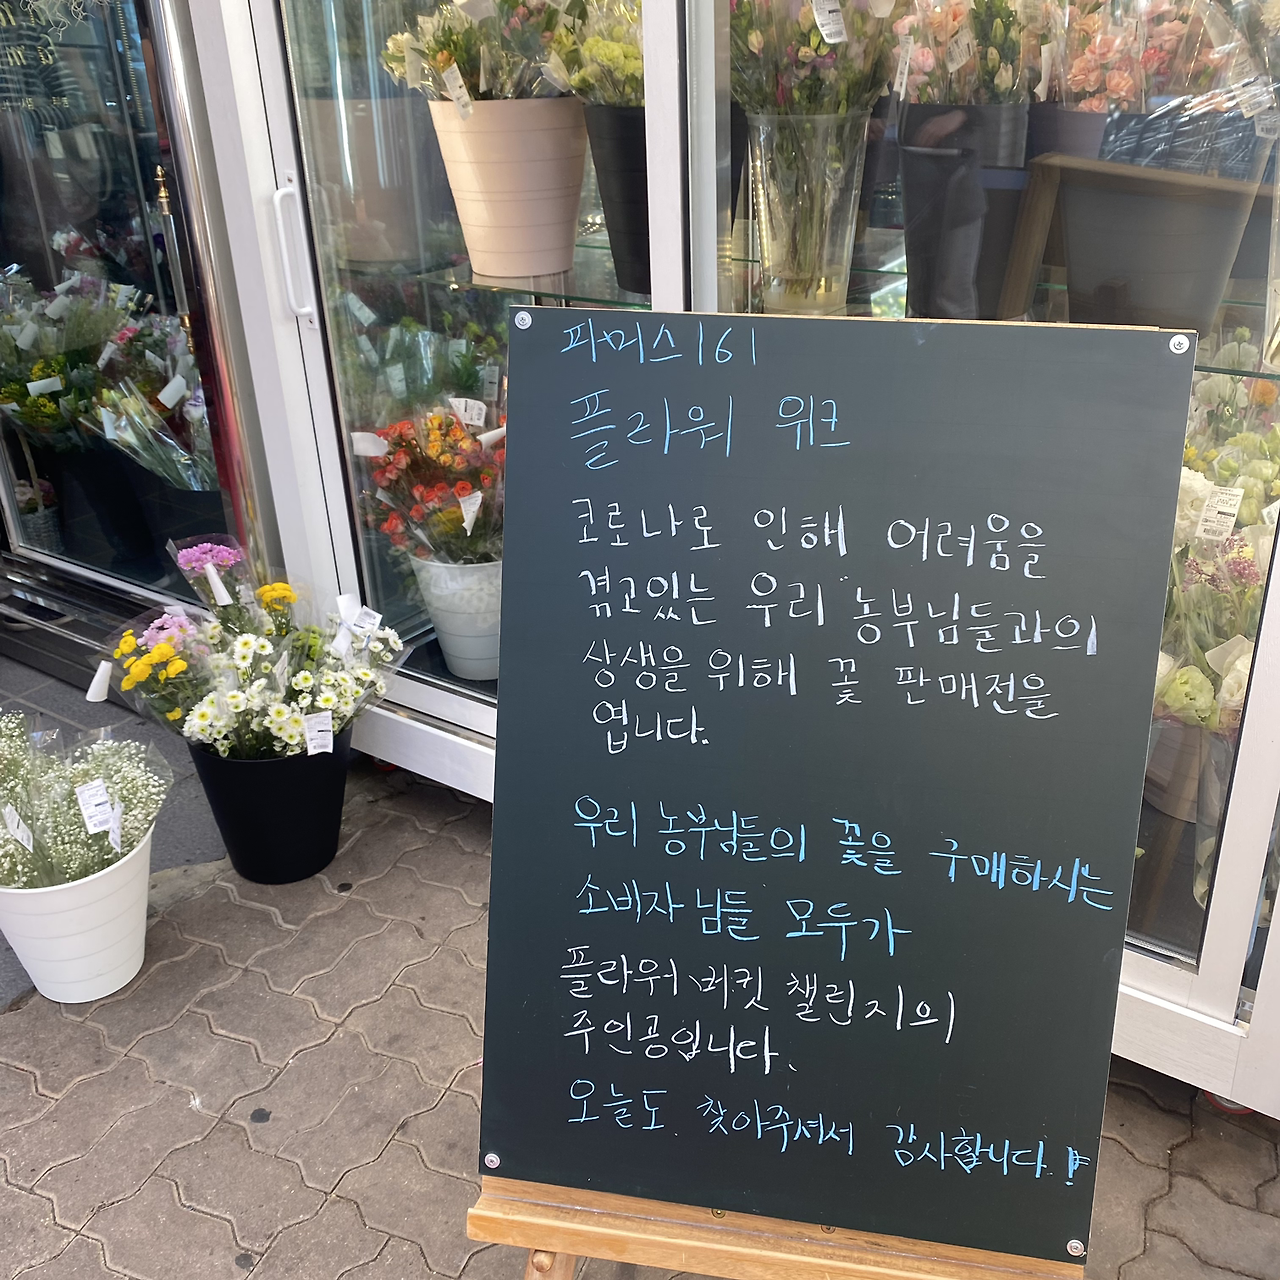 파머스161
플라워 위크
코로나로 인해 어려움을
겪고있는 우리 농부님들과의
상생을 위해 꽃 판매전을
엽니다.
우리 농부님들의 꽃을 구매하시는
소비자님들 모두가
플라워 버킷 챌린지의
주인공입니다.
오늘도 찾아주셔서 감사합니다!